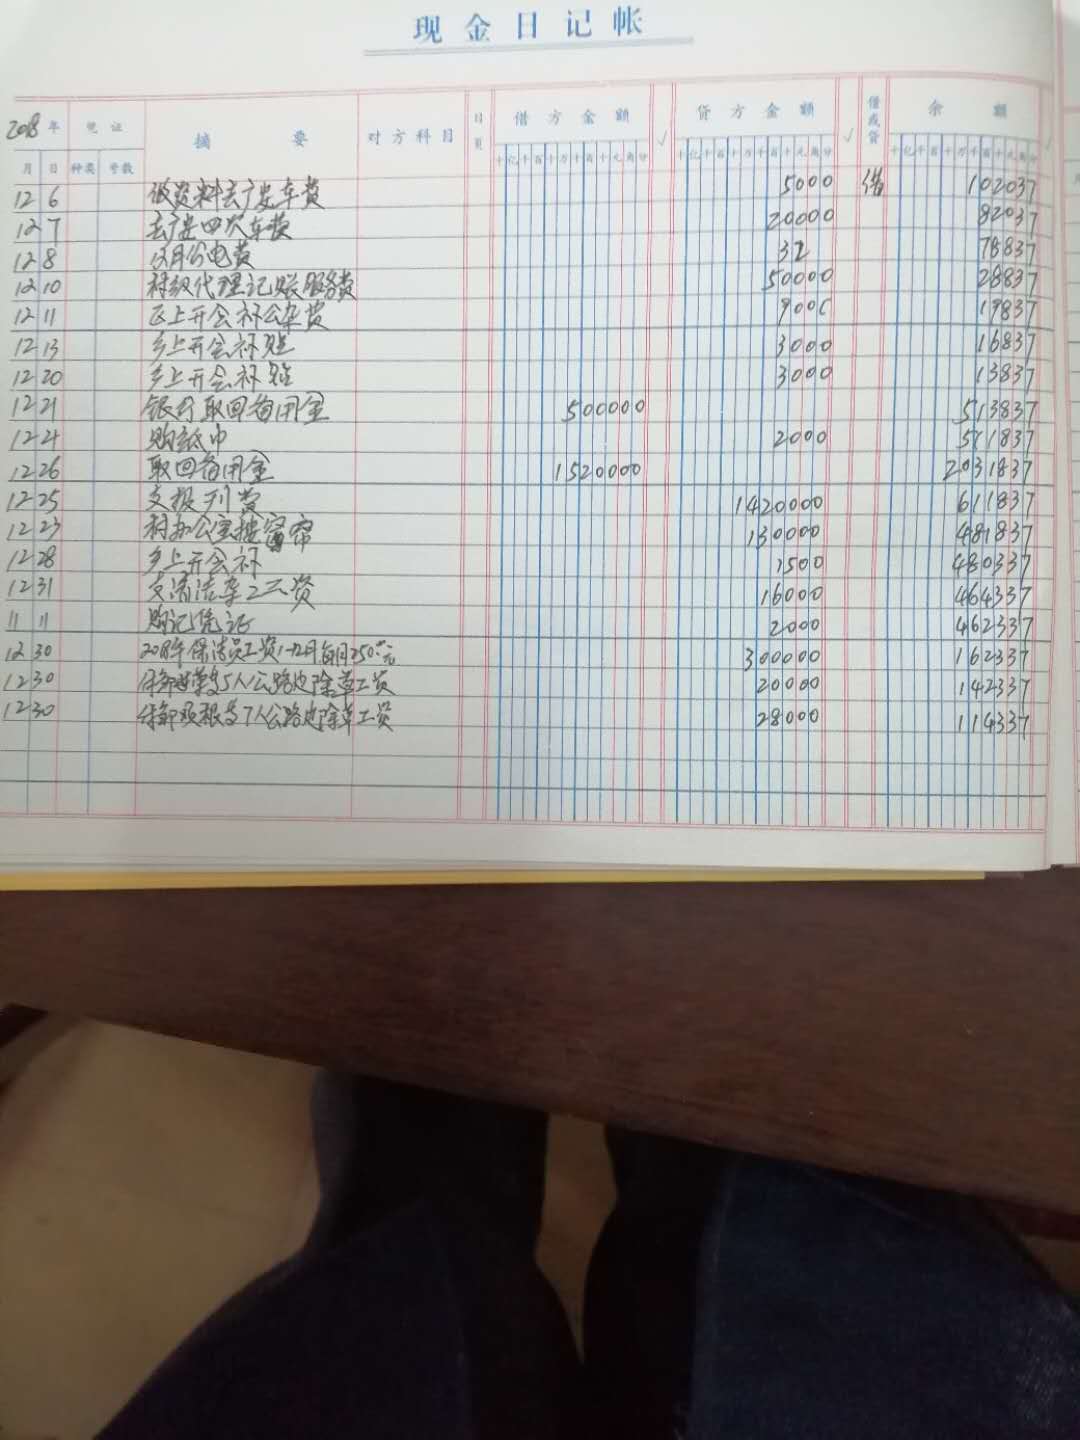 现金日记帐
2018年 凭证 摘要 对方科目 日页 借方金额 √ 贷方金额 √ 借或贷 余额
月 日 种类 号数 十亿千百十万千百十元角分 十亿千百十万千百十元角分 十亿千百十万千百十元角分
12 6 做资料去广安车费 5000 借 102037
12 7 去广安四次车费 20000 82037
12 8 月份电费 32 78837
12 10 村级代理记账服务费 50000 28837
12 11 上开会补公杂费 900 19837
12 13 乡上开会补贴 3000 16837
12 20 乡上开会补贴 3000 13837
12 21 银行取回备用金 500000 513837
12 24 购纸巾 2000 511837
12 26 取回备用金 1520000 2031837
12 25 支报刊费 1420000 611837
12 23 村办公室换窗帘 130000 481837
12 28 乡上开会补 1500 480337
12 31 支清洁工工资 16000 464337
11 11 购记凭证 2000 462337
12 30 2018年保洁员工资1-12月每月250元 300000 162337
12 30 5人公路边除草工资 20000 142337
12 30 7人公路边除草工资 28000 114337